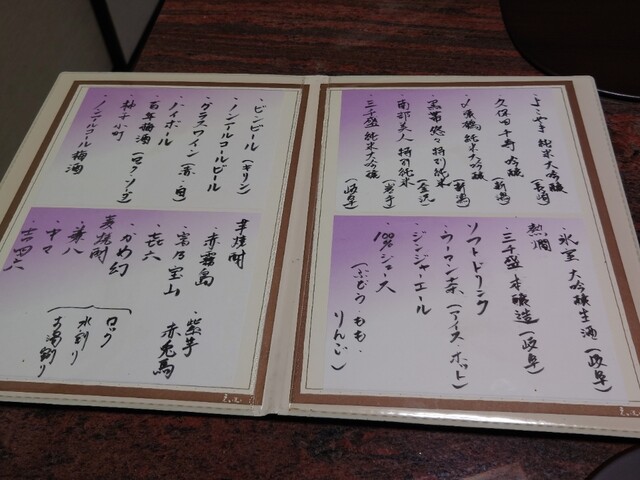 ・よこやま 純米大吟醸(長崎)
・久保田千寿 吟醸(新潟)
・〆張鶴 純米大吟醸(新潟)
・黒帯 悠々 特別純米(金沢)
・南部美人 特別純米(岩手)
・三千盛 純米大吟醸(岐阜)
・氷室 大吟醸生酒(岐阜)
熱燗
・三千盛 本醸造(岐阜)
ソフトドリンク
・ウーロン茶(アイス・ホット)
・ジンジャーエール
・100%ジュース
(ぶどう・もも・りんご)
・ビンビール(キリン)
・ノンアルコールビール
・グラスワイン(赤・白)
・ハイボール
・百年梅酒(ロック・ソーダ)
・柚子小町
・ノンアルコール梅酒
芋焼酎
・赤霧島 ・紫芋
・富乃宝山 赤兎馬
・㐂六
・かめ幻
麦焼酎
・兼八
・中々
・吉四六
ロック
水割り
お湯割り